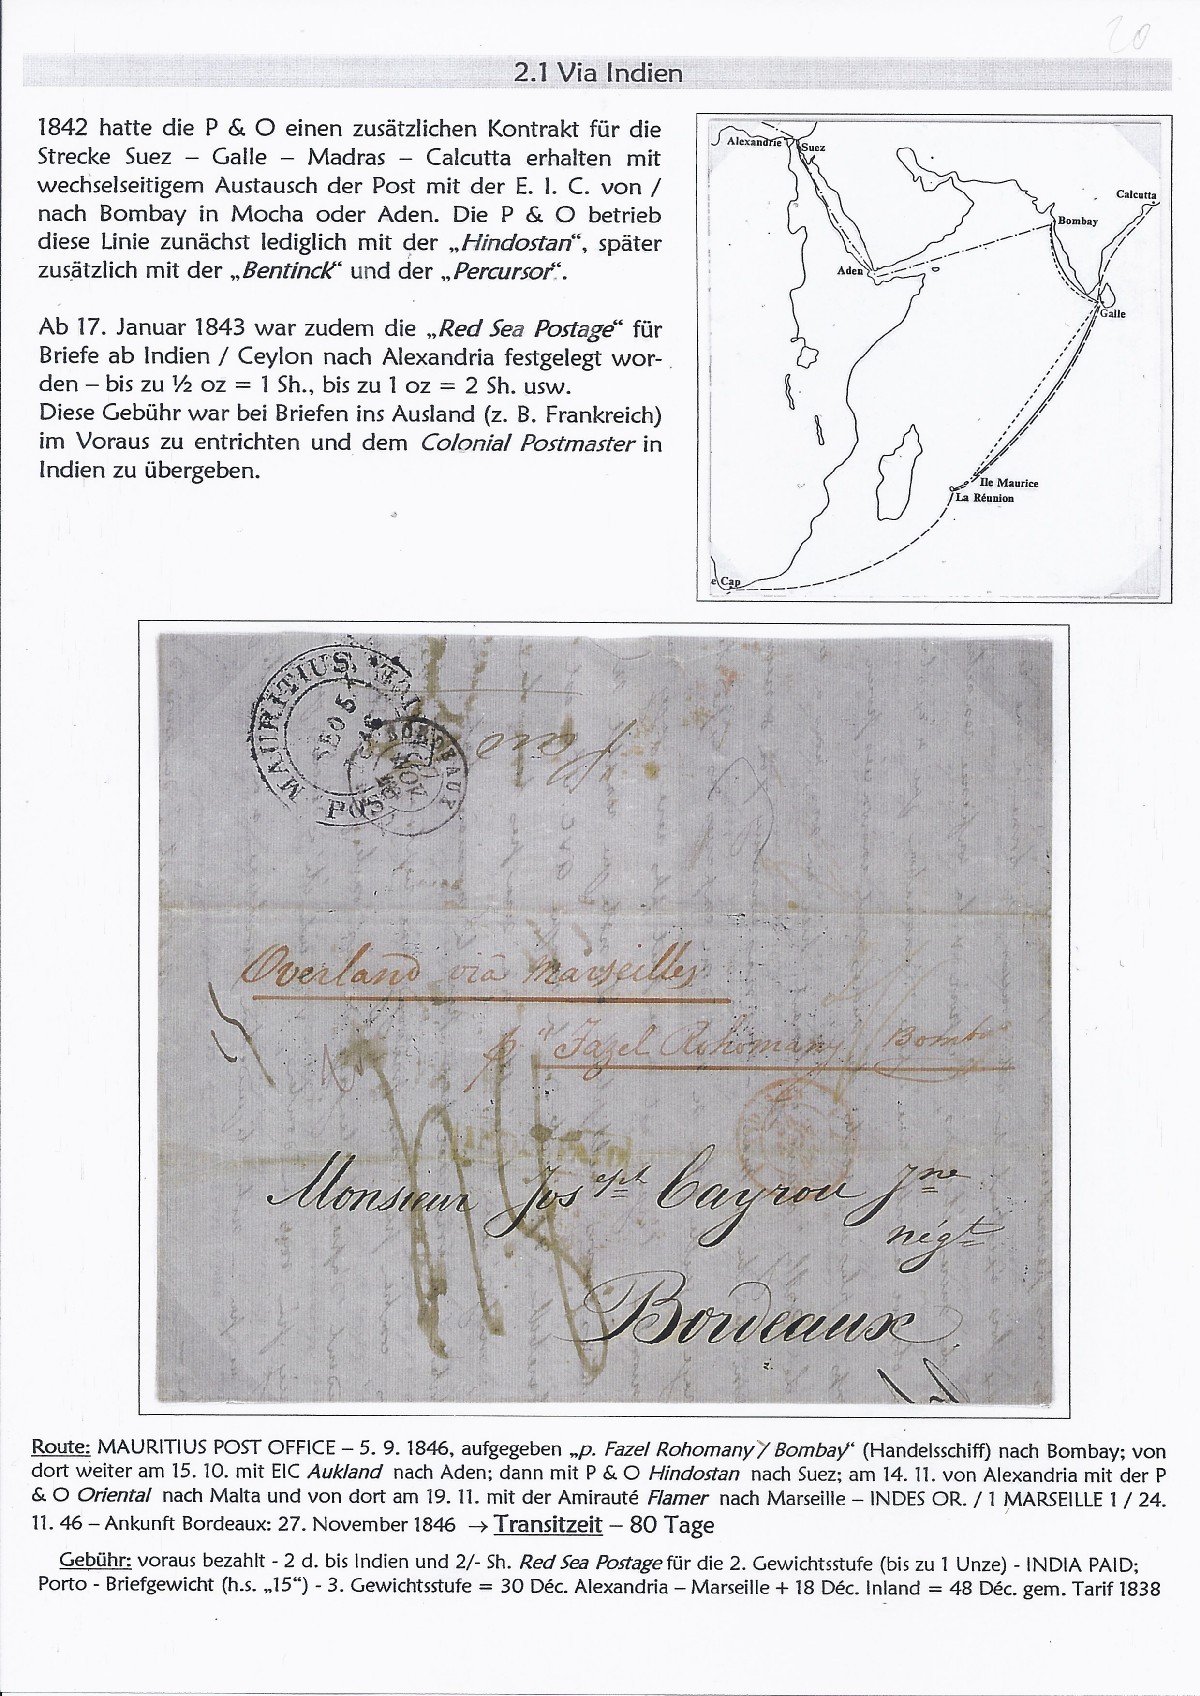 20
2.1 Via Indien
1842 hatte die P & O einen zusätzlichen Kontrakt für die
Strecke Suez – Galle – Madras – Calcutta erhalten mit
wechselseitigem Austausch der Post mit der E. I. C. von /
nach Bombay in Mocha oder Aden. Die P & O betrieb
diese Linie zunächst lediglich mit der „Hindostan“, später
zusätzlich mit der „Bentinck“ und der „Percursor“.
Ab 17. Januar 1843 war zudem die „Red Sea Postage“ für
Briefe ab Indien / Ceylon nach Alexandria festgelegt wor-
den – bis zu ½ oz = 1 Sh., bis zu 1 oz = 2 Sh. usw.
Diese Gebühr war bei Briefen ins Ausland (z. B. Frankreich)
im Voraus zu entrichten und dem Colonial Postmaster in
Indien zu übergeben.
Alexandrie
Suez
Calcutta
Bombay
Aden
Galle
Ile Maurice
La Réunion
e Cap
MAURITIUS POST
SE 5
BORDEAUX
NOV
Paid
Overland viâ Marseilles
p. "Fazel Rohomany / Bombay
Monsieur Joseph Cayrou Jne
négt
Bordeaux
Route: MAURITIUS POST OFFICE – 5. 9. 1846, aufgegeben „p. Fazel Rohomany / Bombay“ (Handelsschiff) nach Bombay; von
dort weiter am 15. 10. mit EIC Aukland nach Aden; dann mit P & O Hindostan nach Suez; am 14. 11. von Alexandria mit der P
& O Oriental nach Malta und von dort am 19. 11. mit der Amirauté Flamer nach Marseille – INDES OR. / 1 MARSEILLE 1 / 24.
11. 46 – Ankunft Bordeaux: 27. November 1846 → Transitzeit – 80 Tage
Gebühr: voraus bezahlt - 2 d. bis Indien und 2/- Sh. Red Sea Postage für die 2. Gewichtsstufe (bis zu 1 Unze) - INDIA PAID;
Porto - Briefgewicht (h.s. „15“) - 3. Gewichtsstufe = 30 Déc. Alexandria – Marseille + 18 Déc. Inland = 48 Déc. gem. Tarif 1838